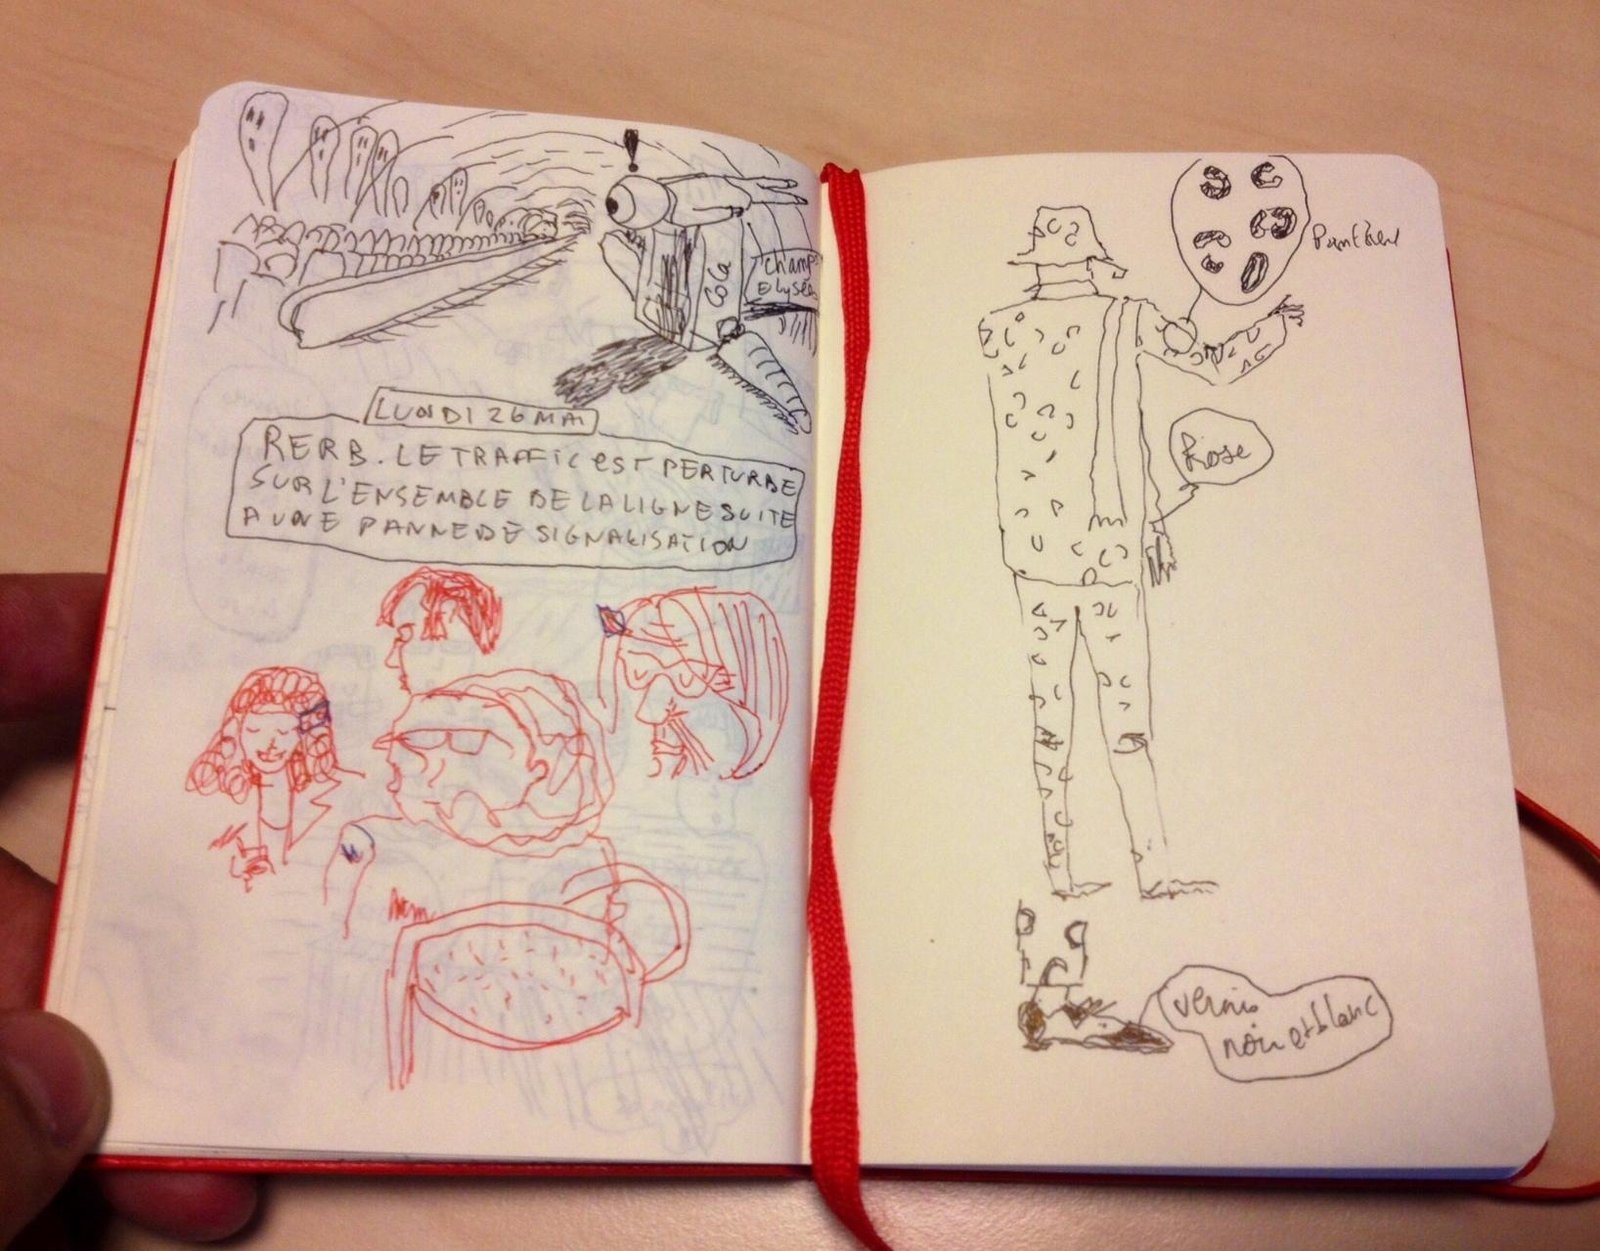 !
Cola
Champs
Elysées
LUNDI 26 MAI
RER B. LE TRAFFIC EST PERTURBE
SUR L'ENSEMBLE DE LA LIGNE SUITE
A UNE PANNE DE SIGNALISATION
Rose
vernis
noir et blanc